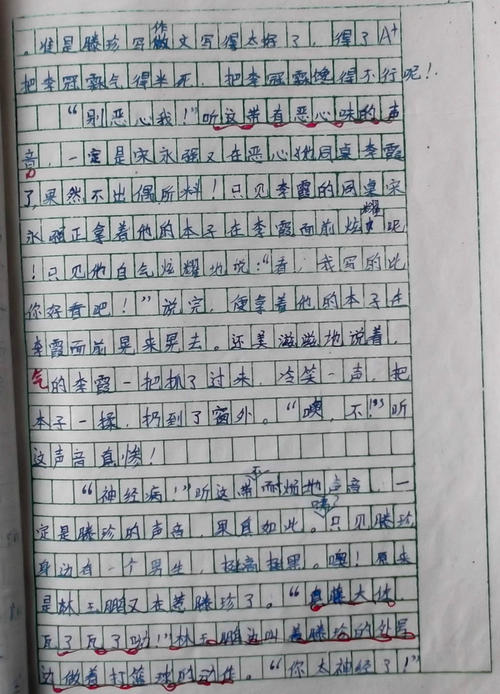 。准是滕珍写作文写得太好了，得了A+
把李冠霸气得半死，把李冠霸馋得不行呢！
“别恶心我！”听这带有恶心味的声
音，一定是宋永强又在恶心他同桌李霞
了，果然不出偶所料！只见李霞的同桌宋
永强正拿着他的本子在李霞面前炫耀呢
！只见他自气炫耀地说：“看，我写的比
你好看吧！”说完，便拿着他的本子在
李霞面前晃来晃去。还美滋滋地说着，
气的李霞一把抓了过来，冷笑一声，把
本子一揉，扔到了窗外。“噢，不！”听
这声音真惨！
“神经病！”听这带不耐烦地声音，一
定是滕珍的声音，果真如此。只见滕珍
身边有一个男生，挺高挺黑。噢！原来
是林玉鹏又在惹滕珍了。“大作
瓦了瓦了啦！”林玉鹏边叫着滕珍的外号
边做着打篮球的动作。“你太神经了！”